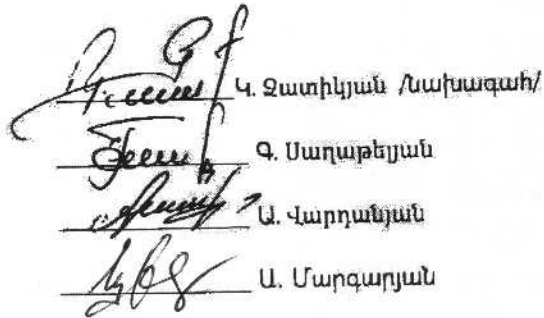 Կ. Զատիկյան /նախագահ/
Գ. Սաղաթելյան
Ա. Վարդանյան
Ա. Մարգարյան